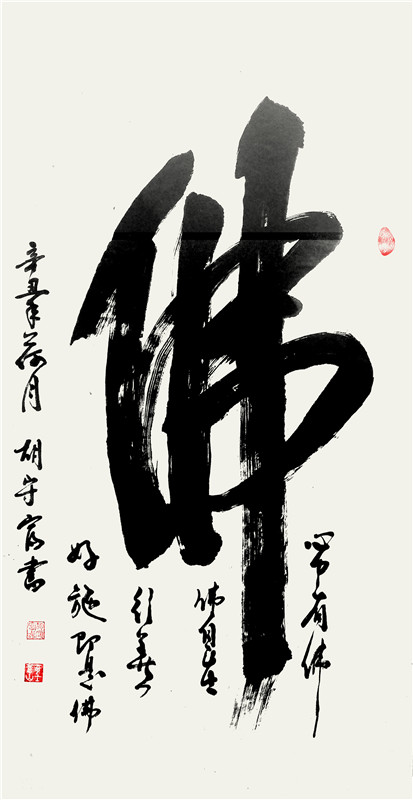 佛
心中有佛
佛自在
行善
好施即是佛
辛丑年荷月 胡守書